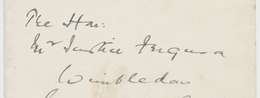 The Hon:
Mr Justice Ferguson
Wimbledon